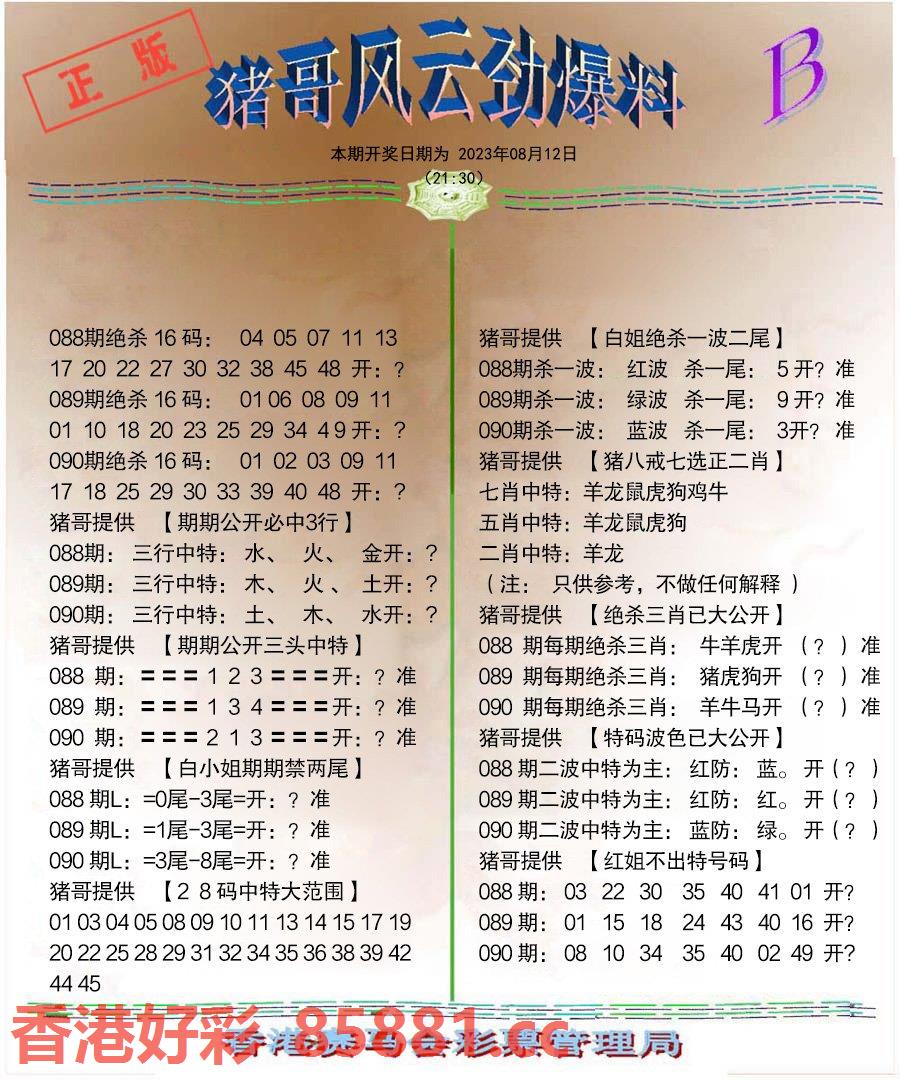 正版
猪哥风云劲爆料
B
本期开奖日期为 2023年08月12日
(21:30)
088期绝杀 16 码： 04 05 07 11 13
17 20 22 27 30 32 38 45 48 开：?
089期绝杀 16 码： 01 06 08 09 11
01 10 18 20 23 25 29 34 4 9 开：?
090期绝杀 16 码： 01 02 03 09 11
17 18 25 29 30 33 39 40 48 开：?
猪哥提供 【期期公开必中3行】
088期： 三行中特： 水、 火、 金开：?
089期： 三行中特： 木、 火、 土开：?
090期： 三行中特： 土、 木、 水开：?
猪哥提供 【期期公开三头中特】
088 期：＝＝＝1 2 3＝＝＝开：? 准
089 期：＝＝＝1 3 4＝＝＝开：? 准
090 期：＝＝＝2 1 3＝＝＝开：? 准
猪哥提供 【白小姐期期禁两尾】
088 期L：=0尾-3尾=开：? 准
089 期L：=1尾-3尾=开：? 准
090 期L：=3尾-8尾=开：? 准
猪哥提供 【2 8 码中特大范围】
01 03 04 05 08 09 10 11 13 14 15 17 19
20 22 25 28 29 31 32 34 35 36 38 39 42
44 45
猪哥提供 【白姐绝杀一波二尾】
088期杀一波： 红波 杀一尾： 5 开? 准
089期杀一波： 绿波 杀一尾： 9 开? 准
090期杀一波： 蓝波 杀一尾： 3开? 准
猪哥提供 【猪八戒七选正二肖】
七肖中特：羊龙鼠虎狗鸡牛
五肖中特：羊龙鼠虎狗
二肖中特：羊龙
（注： 只供参考，不做任何解释 ）
猪哥提供 【绝杀三肖已大公开】
088 期每期绝杀三肖： 牛羊虎开 （? ）准
089 期每期绝杀三肖： 猪虎狗开 （? ）准
090 期每期绝杀三肖： 羊牛马开 （? ）准
猪哥提供 【特码波色已大公开】
088 期二波中特为主：红防：蓝。开（? ）
089 期二波中特为主：红防：红。开（? ）
090 期二波中特为主：蓝防：绿。开（? ）
猪哥提供 【红姐不出特号码】
088 期： 03 22 30 35 40 41 01 开?
089 期： 01 15 18 24 43 40 16 开?
090 期： 08 10 34 35 40 02 49 开?
香港好彩 85881.cc
香港赛马会彩票管理局